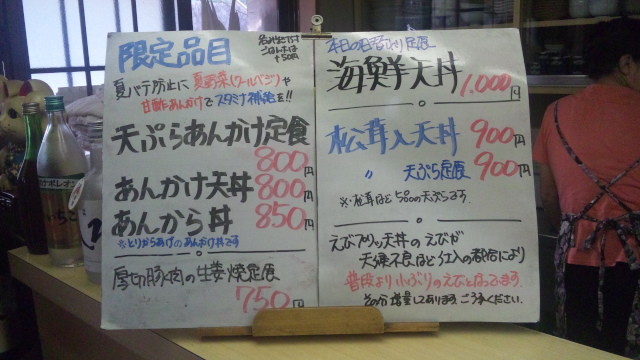 限定品目
夏バテ防止に 夏野菜(クールベジ)や
甘酢あんかけでスタミナ補給を!!
天ぷらあんかけ定食
800円
あんかけ天丼 800円
あんから丼 850円
とりからあげのあんかけ丼です
厚切豚肉の生姜焼定食
750円
+50円
本日の日替り定食
海鮮天丼
1,000円
松茸入天丼 900円
〃 天ぷら定食 900円
※松茸ほど5品の天ぷらです
えびプリッ天丼のえびが
普段より小ぶりのえびとなってます
その分増量してあります ご了承ください。